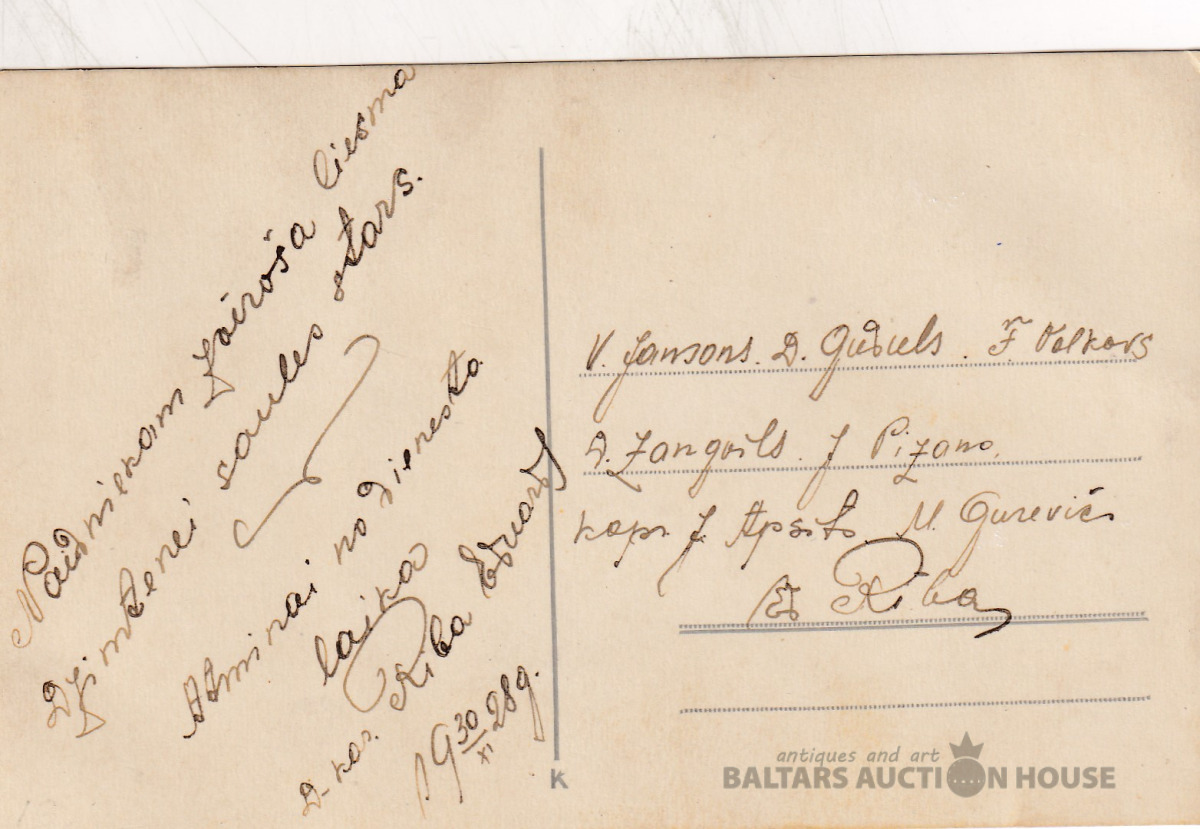 Naidniekam zvēroša liesma
Dzimtenei saules stars.
Atminai no dienesta
laika
Riba Eduards
D-kas. 19 30/XI 28 g.
V. Jansons. D. Guduls. F Volkovs
D. Zangvils. J Pizano.
kapr. J. Apsits M. Gurevičs
Ed Riba
K
antiques and art
BALTARS AUCTION HOUSE